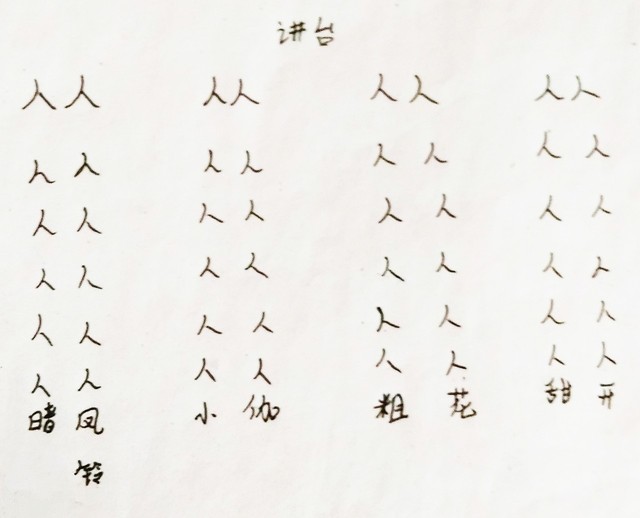 讲台
人人 人人 人人 人人
人人 人人 人人 人人
人人 人人 人人 人人
人人 人人 人人 人人
人人 人人 人人 人人
人人 人人 人人 人人
凤 小 伽 粗 花 甜 开
铃